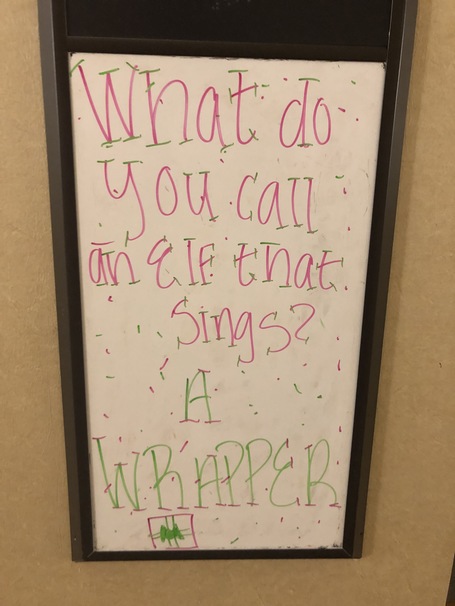 What do
you call
an Elf that
Sings?
A
WRAPPER